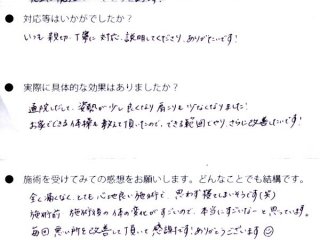 ● 対応等はいかがでしたか？
いつも親切、丁寧に対応、説明してくださり、ありがたいです！
● 実際に具体的な効果はありましたか？
通院しだして、姿勢が少し良くなり肩こりも少なくなりました！
お家でできる体操も教えて頂いたので、できる範囲でやり、さらに改善したいです！
● 施術を受けてみての感想をお願いします。どんなことでも結構です。
全く痛くなく、とても心地良い施術で、思わず寝てしまいそうです(笑)
施術前、施術後の体の変化がすごいので、本当にすごいなーと思っています。
毎回悪い所を改善して頂いて感謝です！ありがとうございます